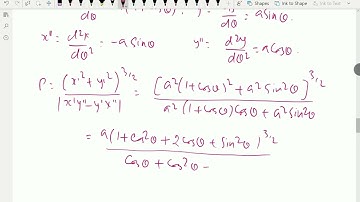 Share to Webex
Ink to Shape
Ink to Text
dθ
dθ
= a sinθ
x'' = d²x/dθ² = -a sinθ    y'' = d²y/dθ² = a cosθ
ρ = (x'² + y'²)^3/2 / |x'y'' - y'x''| = [a²(1+cosθ)² + a² sin²θ]^3/2 / a²(1+cosθ)cosθ + a² sin²θ
= a(1+cos²θ + 2cosθ + sin²θ)^3/2 / cosθ + cos²θ -